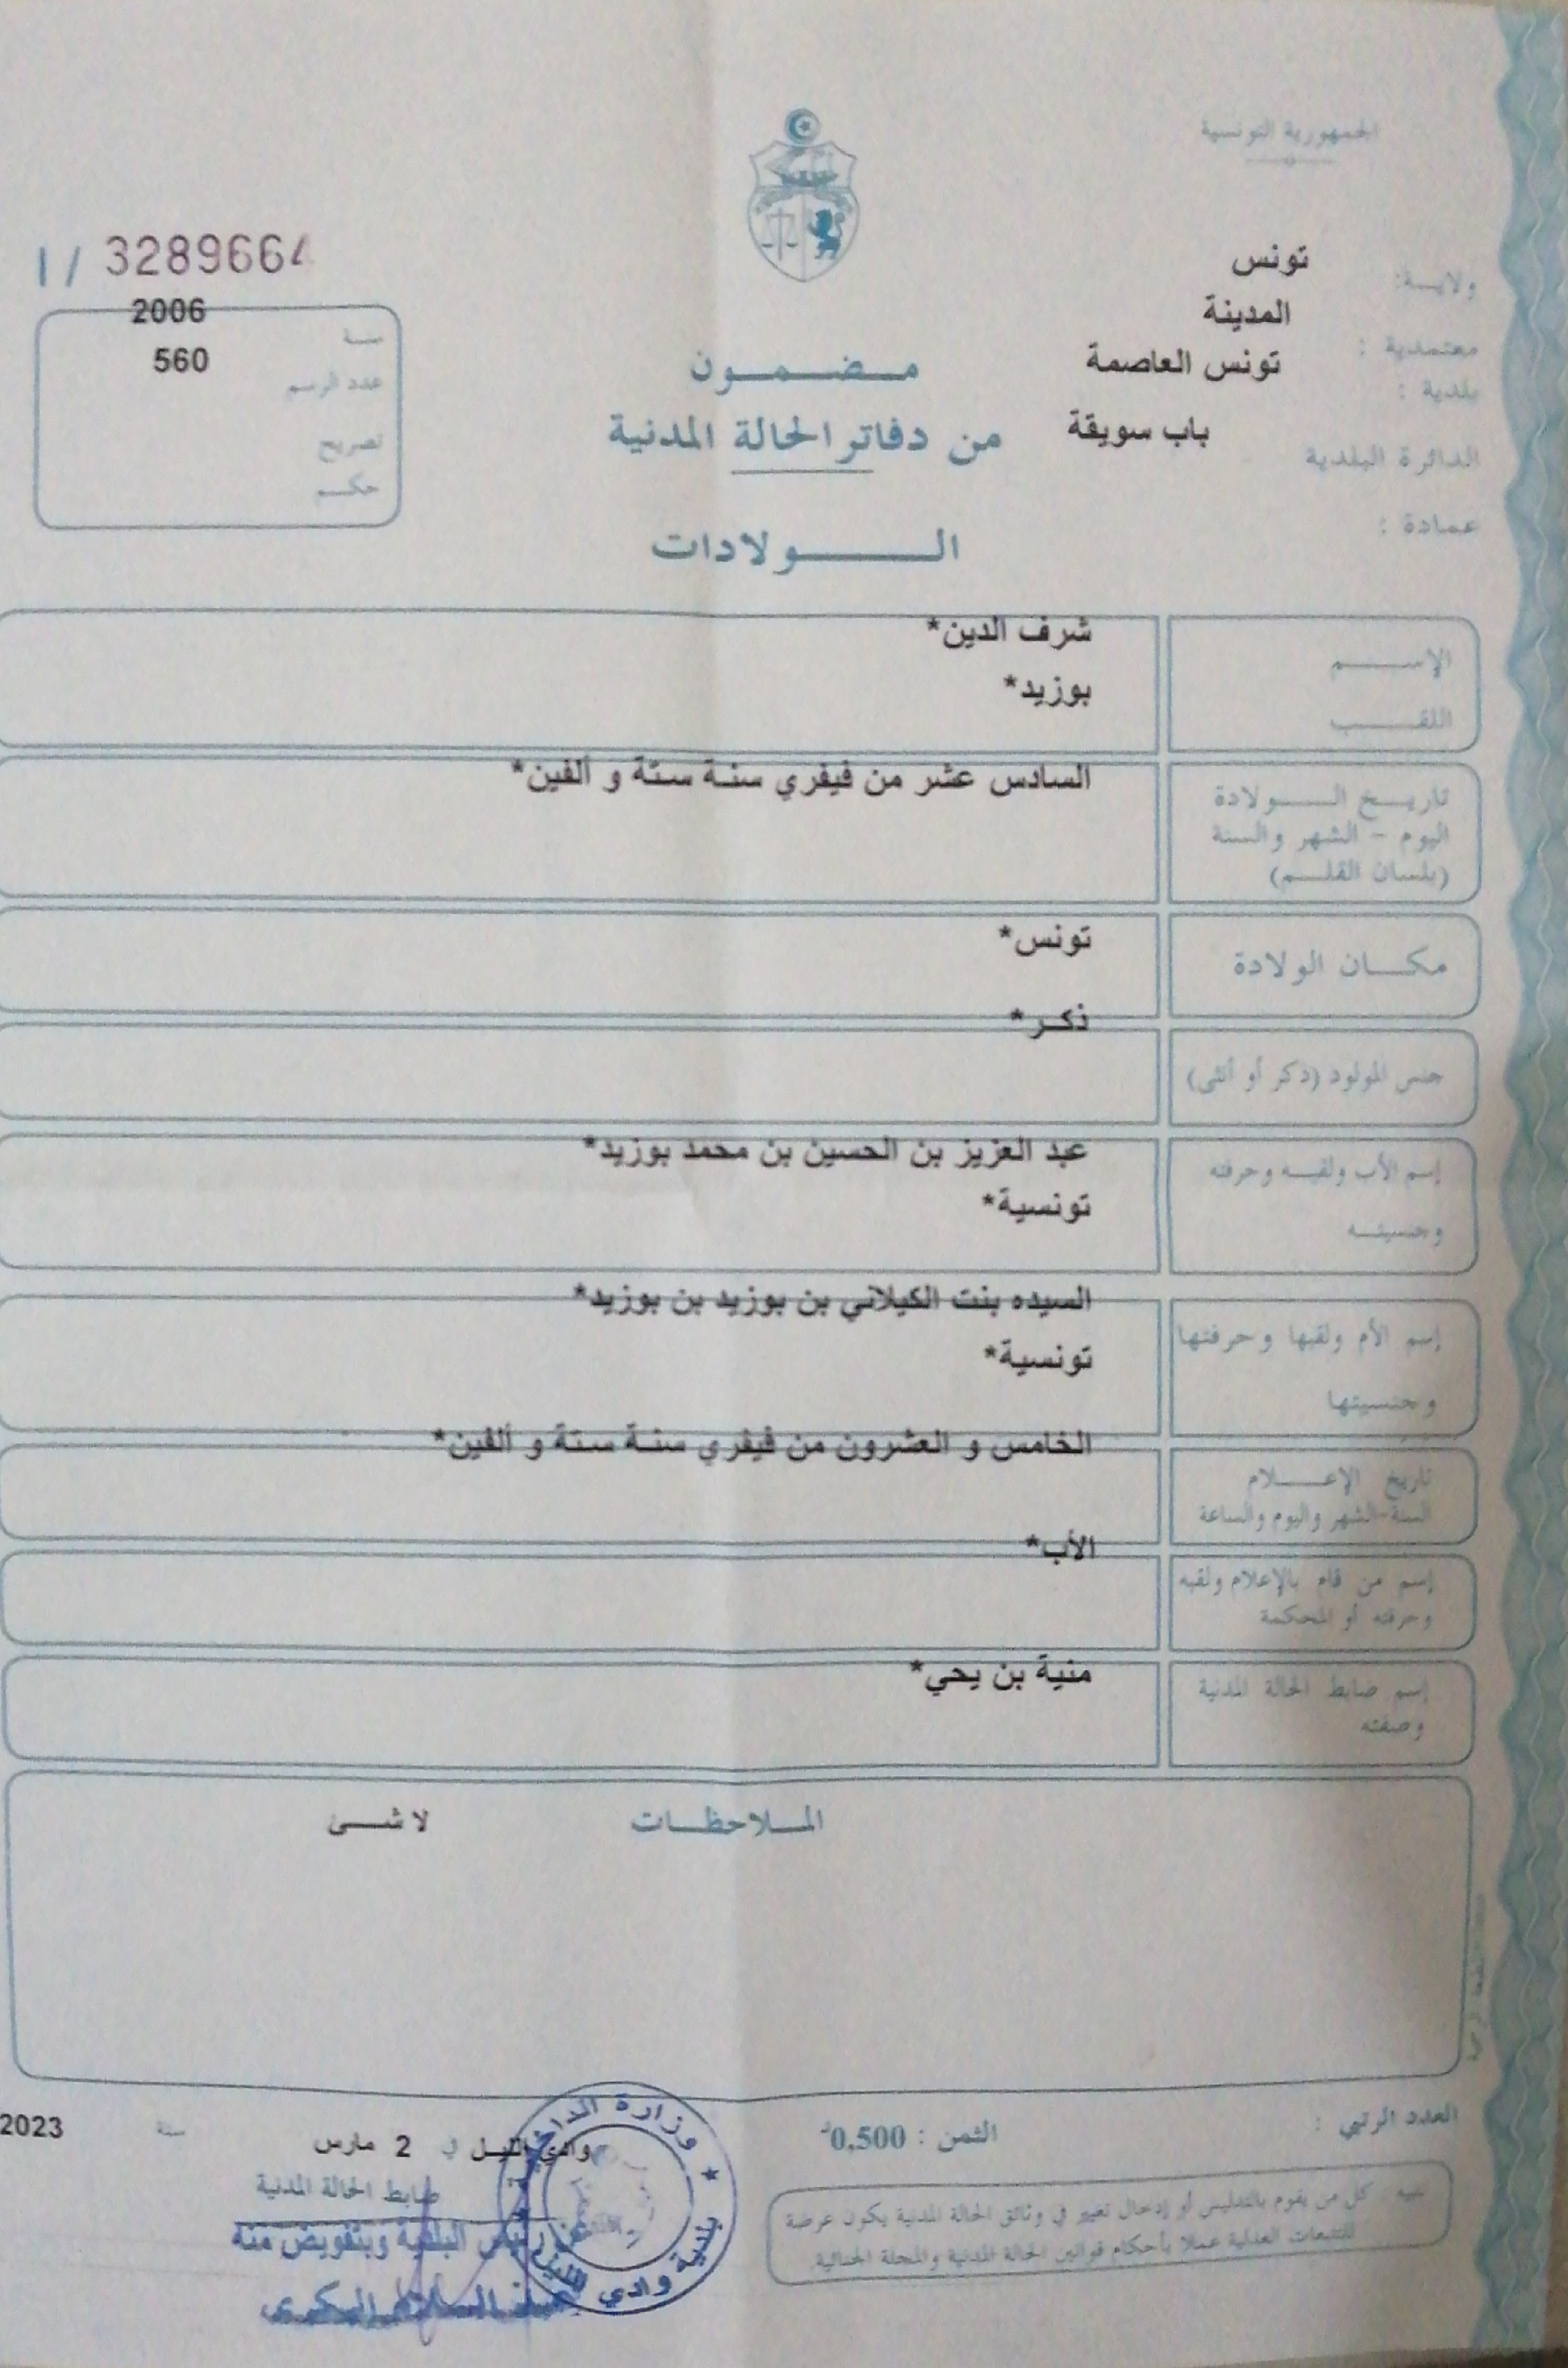 الجمهورية التونسية
1/ 3289664
ولاية: تونس
معتمدية : المدينة
بلدية : تونس العاصمة
الدائرة البلدية باب سويقة
عمادة :
سنة 2006
عدد الرسم 560
تصريح
حكم
مضمون
من دفاتر الحالة المدنية
الولادات
الإسم شرف الدين*
اللقب بوزيد*
تاريخ الولادة السادس عشر من فيفري سنة ستة و ألفين*
اليوم - الشهر والسنة
(بلسان القلم)
مكان الولادة تونس*
جنس المولود (ذكر أو أنثى) ذكر*
إسم الأب ولقبه وحرفته عبد العزيز بن الحسين بن محمد بوزيد*
وجنسيته تونسية*
إسم الأم ولقبها وحرفتها السيده بنت الكيلاني بن بوزيد بن بوزيد*
وجنسيتها تونسية*
تاريخ الإعلام الخامس و العشرون من فيفري سنة ستة و ألفين*
السنة-الشهر واليوم والساعة
إسم من قام بالإعلام ولقبه الأب*
وحرفته أو المحكمة
إسم ضابط الحالة المدنية منية بن يحي*
وصفته
الملاحظات لا شئ
العدد الرتبي :
الثمن : 0,500د
وادي الليل في 2 مارس سنة 2023
ضابط الحالة المدنية
عن رئيس البلدية وبتفويض منه
عبد السلام البكري
وزارة الداخلية
بلدية وادي الليل
تنبيه : كل من يقوم بالتدليس أو إدخال تغيير في وثائق الحالة المدنية يكون عرضة
للتتبعات العدلية عملا بأحكام قوانين الحالة المدنية والمجلة الجنائية.